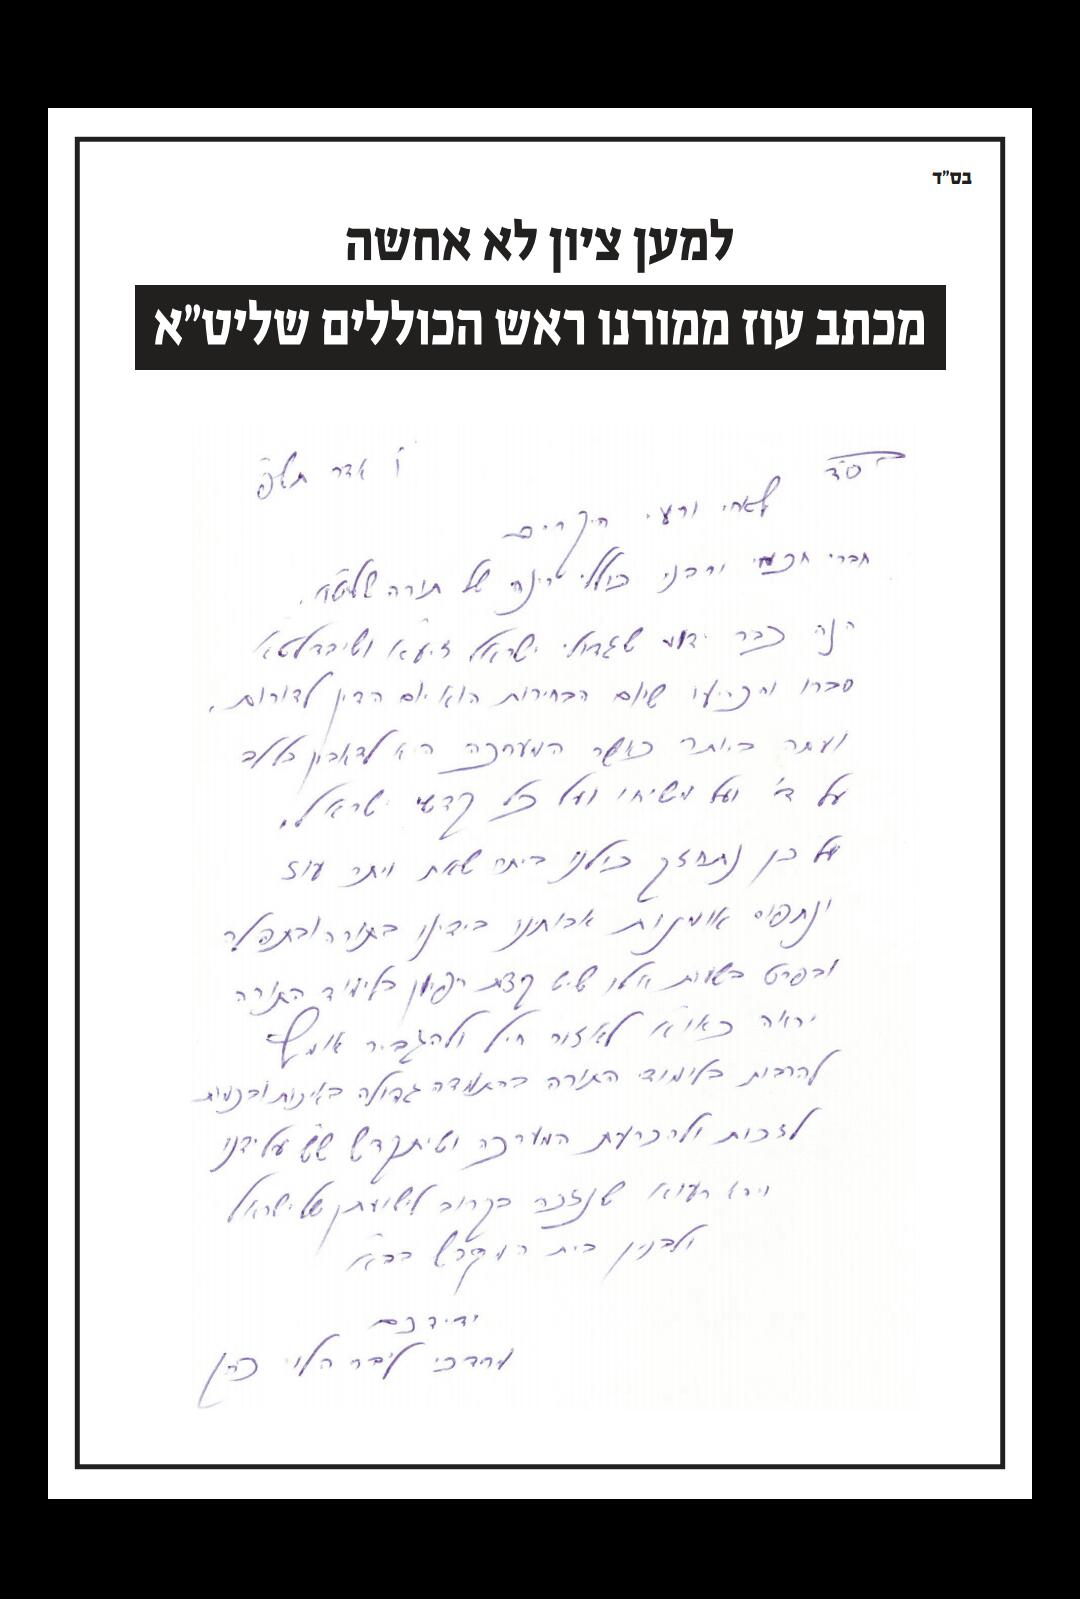 בס״ד
למען ציון לא אחשה
מכתב עוז ממורנו ראש הכוללים שליט״א
בס״ד
ו' אדר תש״פ
לאחי ורעי היקרים
חברי חכמי ורבני כוללי רינה של תורה שליט״א.
הנה כבר ידוע שגדולי ישראל זיע״א ושיבדלט״א
סברו והכריעו שיום הבחירות הוא יום הדין לדורות,
ועתה ביותר כאשר המערכה היא
על ד' ועל משיחו ועל כל קדשי ישראל.
על כן נתחזק כולנו ביתר שאת ויתר עוז
ונתפוס אומנות אבותינו בידינו בתורה ובתפלה
ובפרט בשעות אלו שיש קצת רפיון בלימוד התורה
יראה כאו״א לאזור חיל ולהגביר אומץ
להרבות בלימודי התורה בהתמדה גדולה באיכות ובכמות
לזכות ולהכרעת המערכה ושיתקדש ש״ש על ידנו
ויהא רעוא שנזכה בקרוב לישועתן של ישראל
ולבנין בית המקדש בב״א
ידידכם
מרדכי ליבר הלוי כהן